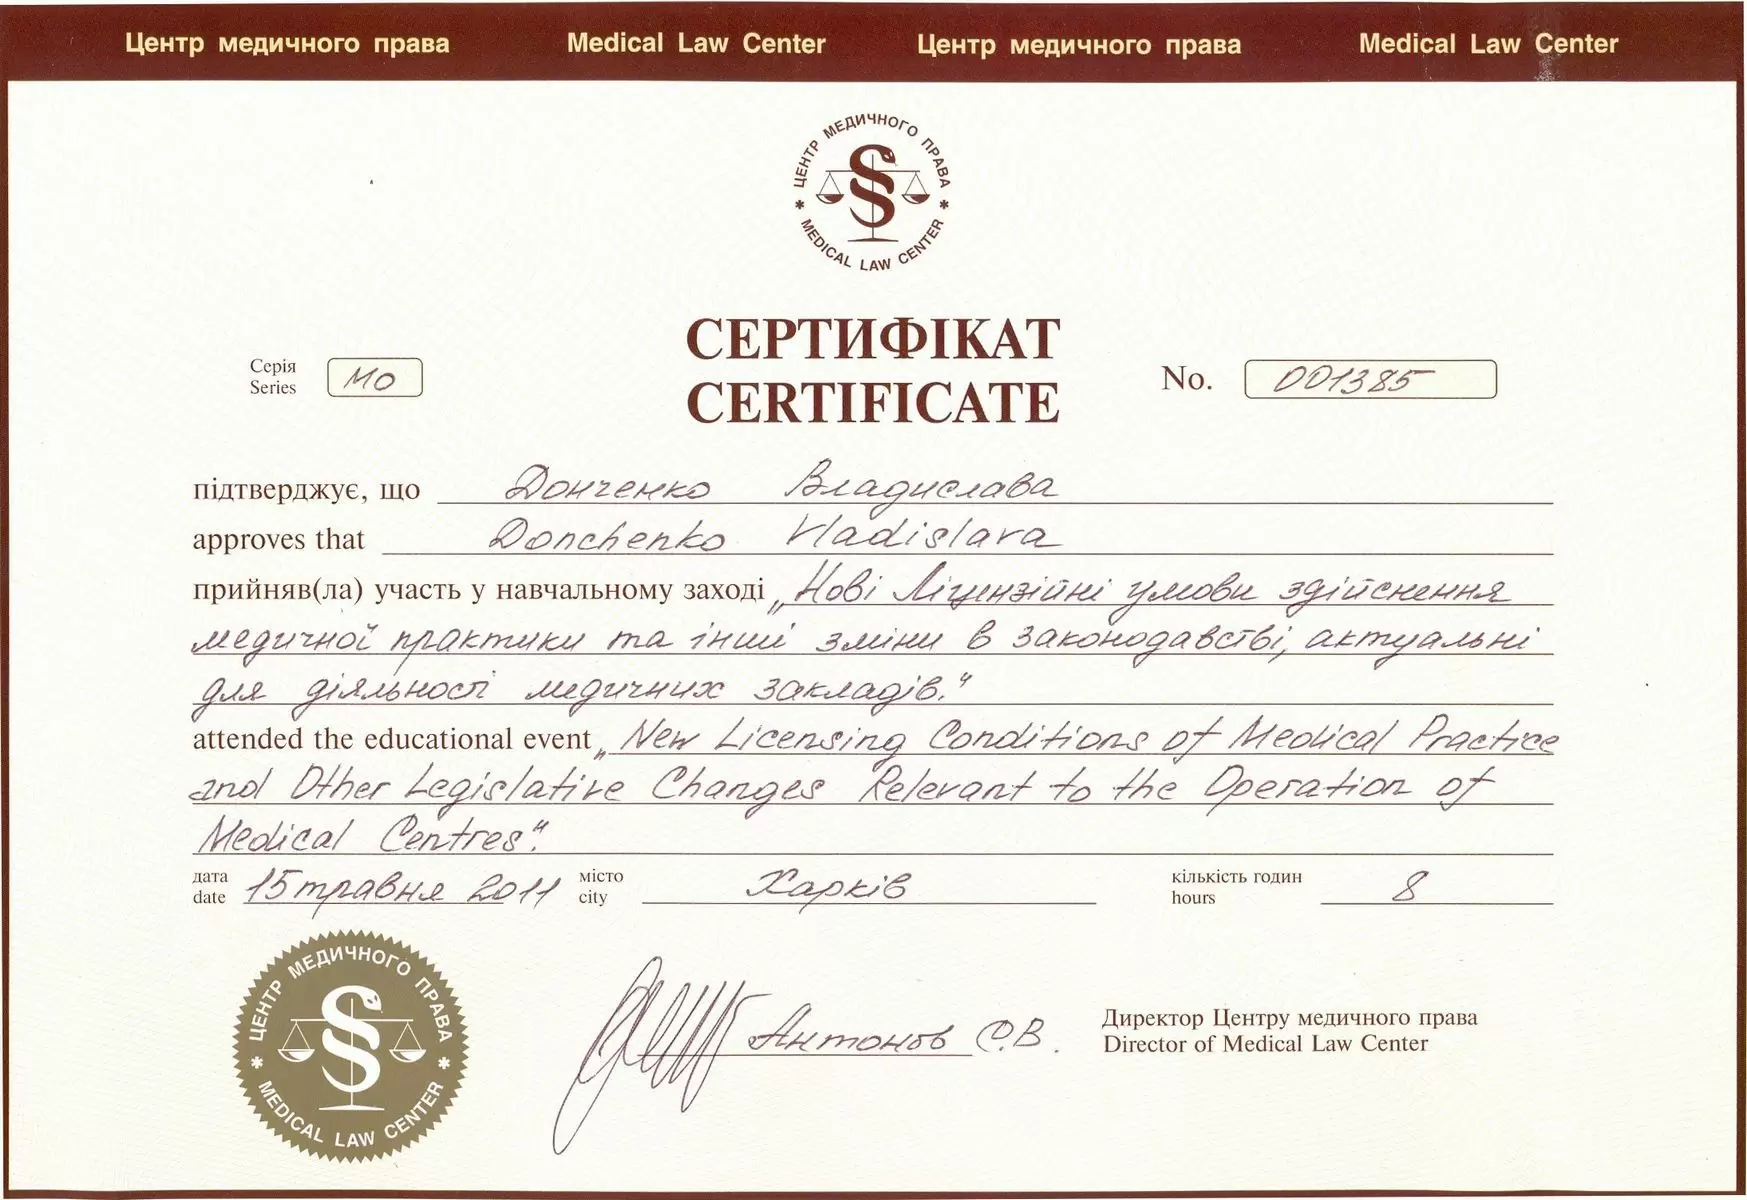 Центр медичного права Medical Law Center Центр медичного права Medical Law Center
ЦЕНТР МЕДИЧНОГО ПРАВА
* MEDICAL LAW CENTER *
СЕРТИФІКАТ
CERTIFICATE
Серія
Series
МО
No. 001385
підтверджує, що Донченко Владислава
approves that Donchenko Vladislava
прийняв(ла) участь у навчальному заході „Нові Ліцензійні умови здійснення
медичної практики та інші зміни в законодавстві, актуальні
для діяльності медичних закладів."
attended the educational event „New Licensing Conditions of Medical Practice
and Other Legislative Changes Relevant to the Operation of
Medical Centres".
дата
date
15 травня 2011
місто
city
Харків
кількість годин
hours
8
ЦЕНТР МЕДИЧНОГО ПРАВА
* MEDICAL LAW CENTER *
Антонов С.В.
Директор Центру медичного права
Director of Medical Law Center